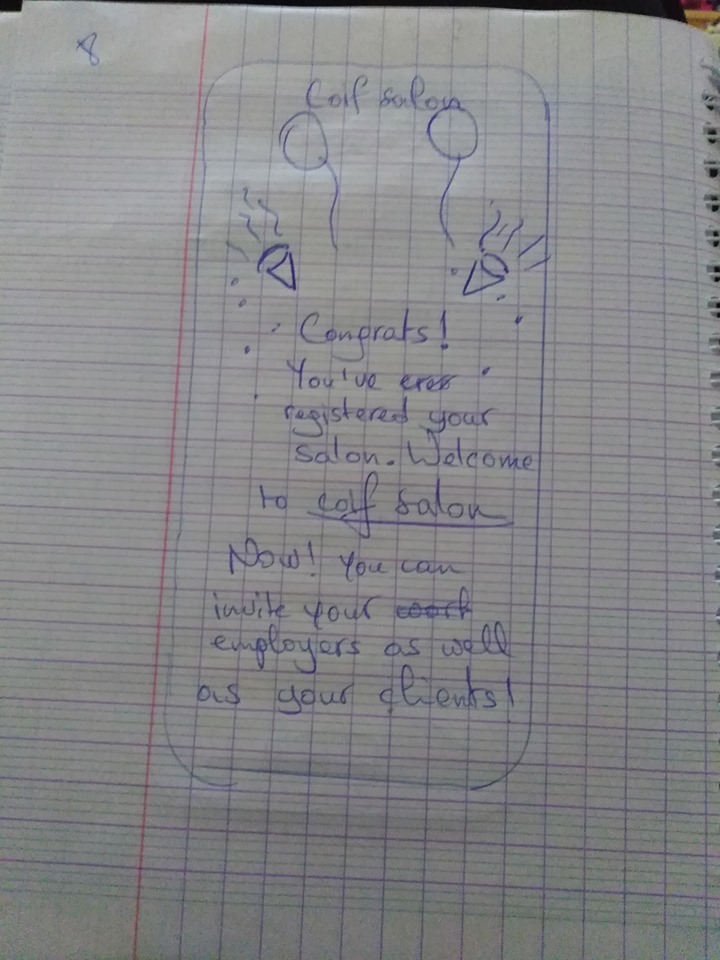 8
Coif salon
Congrats!
You've
registered your
salon. Welcome
to coif salon
Now! You can
invite your
employers as well
as your clients!